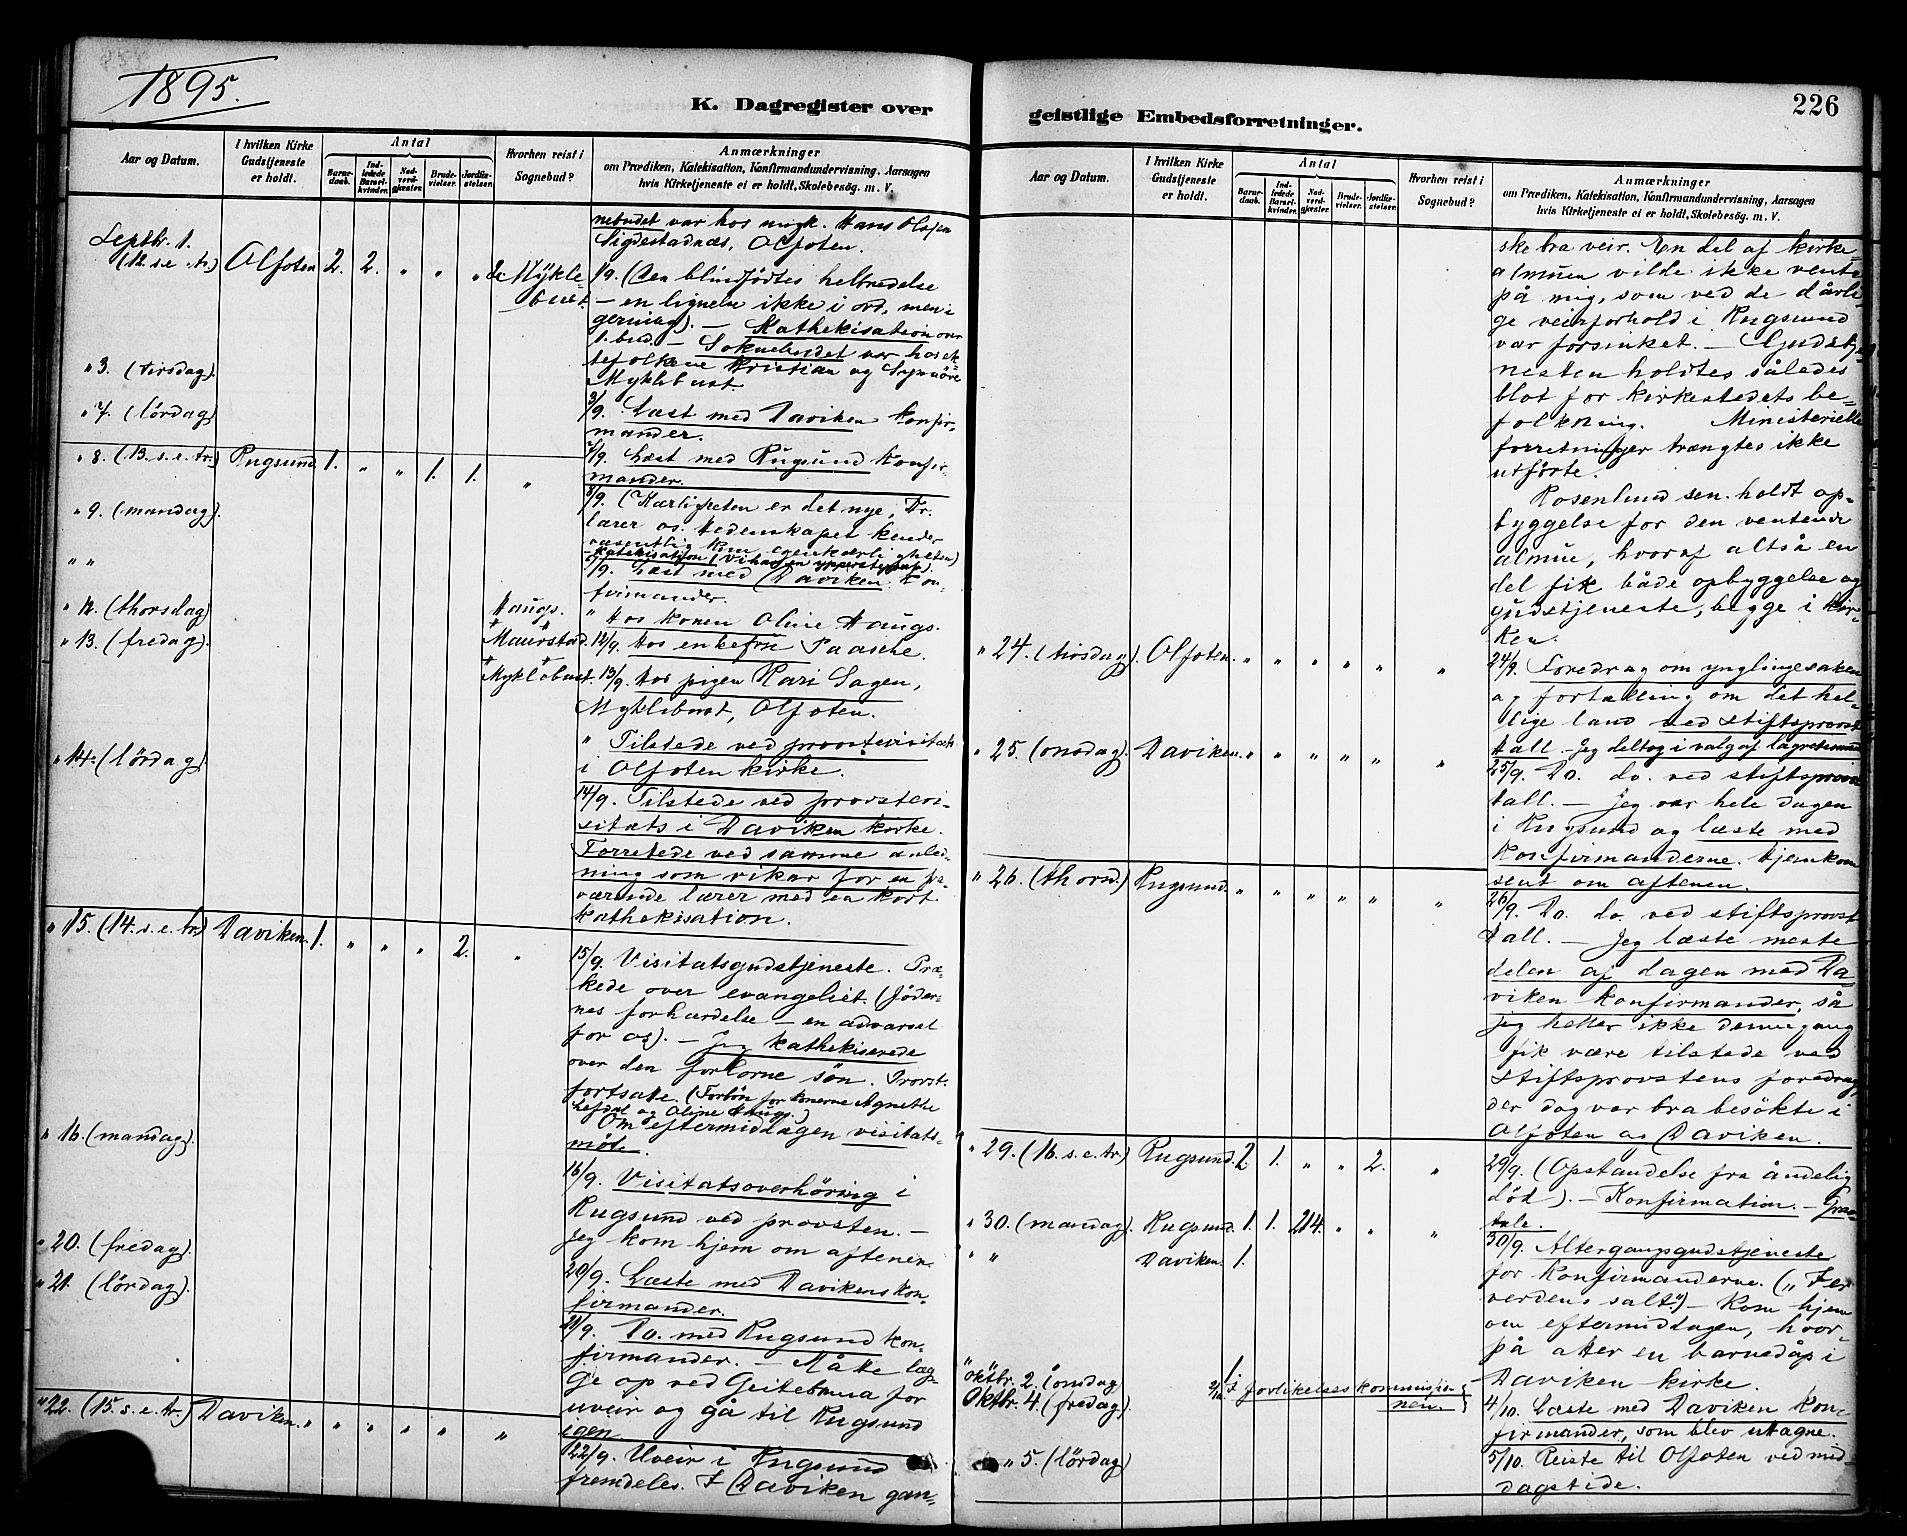 1895.
K. Dagregister over
Aar og Datum.
I hvilken Kirke Gudstjeneste er holdt.
Antal
Barne- daab.
Ind- ledede Barsel- kvinder.
Nad- verd- gjæster.
Brude- vielser.
Jordfæ- stelser.
Hvorhen reist i Sognebud?
Anmærkninger
om Prædiken, Katekisation, Konfirmandundervisning, Aarsagen
hvis Kirketjeneste ei er holdt, Skolebesøg. m. V.
nebudet var hos ungk. Hans Olsen
Sigdestadnæs, Olfoten.
Septbr. 1.
(12. s. e. tr.) Olfoten 2. 2. " " " Mykle-
bust.
1/9. (Den blindfödtes helbredelse
– en lignelse ikke i ord, men i
gerning). – Kathekisation over
1. bud. – Soknebudet var hos ek-
tefolkene Kristian og Synnöve
Myklebust.
" 3. (tirsdag).
3/9. Læst med Daviken konfir-
mander.
" 7. (lördag)
7/9. Læst med Rugsund konfir-
mander.
" 8. (13. s. e. tr.) Rugsund. 1. " " 1. 1. "
8/9. (Kærligheten er det nye, Kr.
lærer os. Hedenskapet kender
væsentlig kun egenkærligheten)
– Katekisation (Vi har en ypperstepræst).
" 9. (mandag).
9/9. Læst med Daviken kon-
firmander.
" "
Haugs.
" Hos konen Oline Haugs.
" 12. (thorsdag)
Maurstad.
12/9. Hos enkefru Paasche.
" 13. (fredag).
Myklebust.
13/9. Hos pigen Kari Sagen,
Myklebust, Olfoten.
" Tilstede ved provstevisitats
i Olfoten kirke.
" 14. (lördag).
14/9. Tilstede ved provstevi-
sitats i Daviken kirke.
Forretede ved samme anled-
ning som vikar for en fra-
værende lærer med en kort
kathekisation.
" 15. (14. s. e. tr.) Daviken. 1. " " " 2. "
15/9. Visitatsgudstjeneste. Præ-
kede over evangeliet. (Jöder-
nes forhærdelse – en advarsel
for os). – Jeg kathekiserede
over den forlorne sön. Provst.
fortsatte. (Forbön for konerne Agnethe
Lefdal og Oline Haugs.)
Om eftermiddagen visitats-
möte.
" 16. (mandag).
16/9. Visitatsoverhöring i
Rugsund ved provsten. –
Jeg kom hjem om aftenen.
" 20. (fredag).
20/9. Læste med Davikens kon-
firmander.
" 21. (lördag).
21/9. Do. med Rugsund kon-
firmander. – Måtte læg-
ge op ved Geitebuna for
uveir og gå til Rugsund
igen.
" 22. (15. s. e. tr.) Daviken. " " " " " "
22/9. Uveir i Rugsund
fremdeles. I Daviken gan-
226
geistlige Embedsforretninger.
Aar og Datum.
I hvilken Kirke Gudstjeneste er holdt.
Antal
Barne- daab.
Ind- ledede Barsel- kvinder.
Nad- verd- gjæster.
Brude- vielser.
Jordfæ- stelser.
Hvorhen reist i Sognebud?
Anmærkninger
om Prædiken, Katekisation, Konfirmandundervisning, Aarsagen
hvis Kirketjeneste ei er holdt, Skolebesøg. m. V.
ske bra veir. En del af kirke-
almuen vilde ikke vente
på mig, som ved de dårli-
ge veirforhold i Rugsund
var forsinket. – Gudstje-
nesten holdtes således
blot for kirkestedets be-
folkning. Ministerielle
forretninger trængtes ikke
utförte.
Rosenlund sen. holdt op-
byggelse for den ventende
almue, hvoraf altså en
del fik både opbyggelse og
gudstjeneste, begge i kir-
ken.
" 24. (tirsdag). Olfoten. " " " " " "
24/9. Foredrag om ynglingesaken
og fortælling om det hel-
lige land ved stiftsprovst
Hall. – Jeg deltog i valg af lagrettemænd
" 25. (onsdag). Daviken. " " " " " "
25/9. Do. do. ved stiftsprovst
Hall. – Jeg var hele dagen
i Rugsund og læste med
konfirmanderne. Hjemkom
sent om aftenen.
" 26. (thorsd.) Rugsund. " " " " " "
26/9. Do. do. ved stiftsprovst
Hall. – Jeg læste meste
delen af dagen med Da-
viken konfirmander, så
jeg heller ikke dennegang
fik være tilstede ved
stiftsprovstens foredrag,
der dog var bra besökte i
Olfoten og Daviken.
" 29. (16. s. e. tr.) Rugsund. 2 1. " " 2. "
29/9. (Opstandelse fra åndelig
död). – Konfirmation. – Grav-
tale.
" 30. (mandag). Rugsund. 1. 1. 214. " " "
" " Daviken. 1.
30/9. Altergangsgudstjeneste
for konfirmanderne. („I er
verdens salt") – Kom hjem
om eftermiddagen, hvor-
på atter en barnedåp i
Daviken kirke.
" Oktbr. 2. (onsdag)
2/10 I forlikelseskommissio-
nen.
Oktbr. 4 (fredag).
4/10. Læste med Daviken kon-
firmander, som blev uttagne.
" 5. (lördag)
5/10. Reiste til Olfoten ved mid-
dagstide.